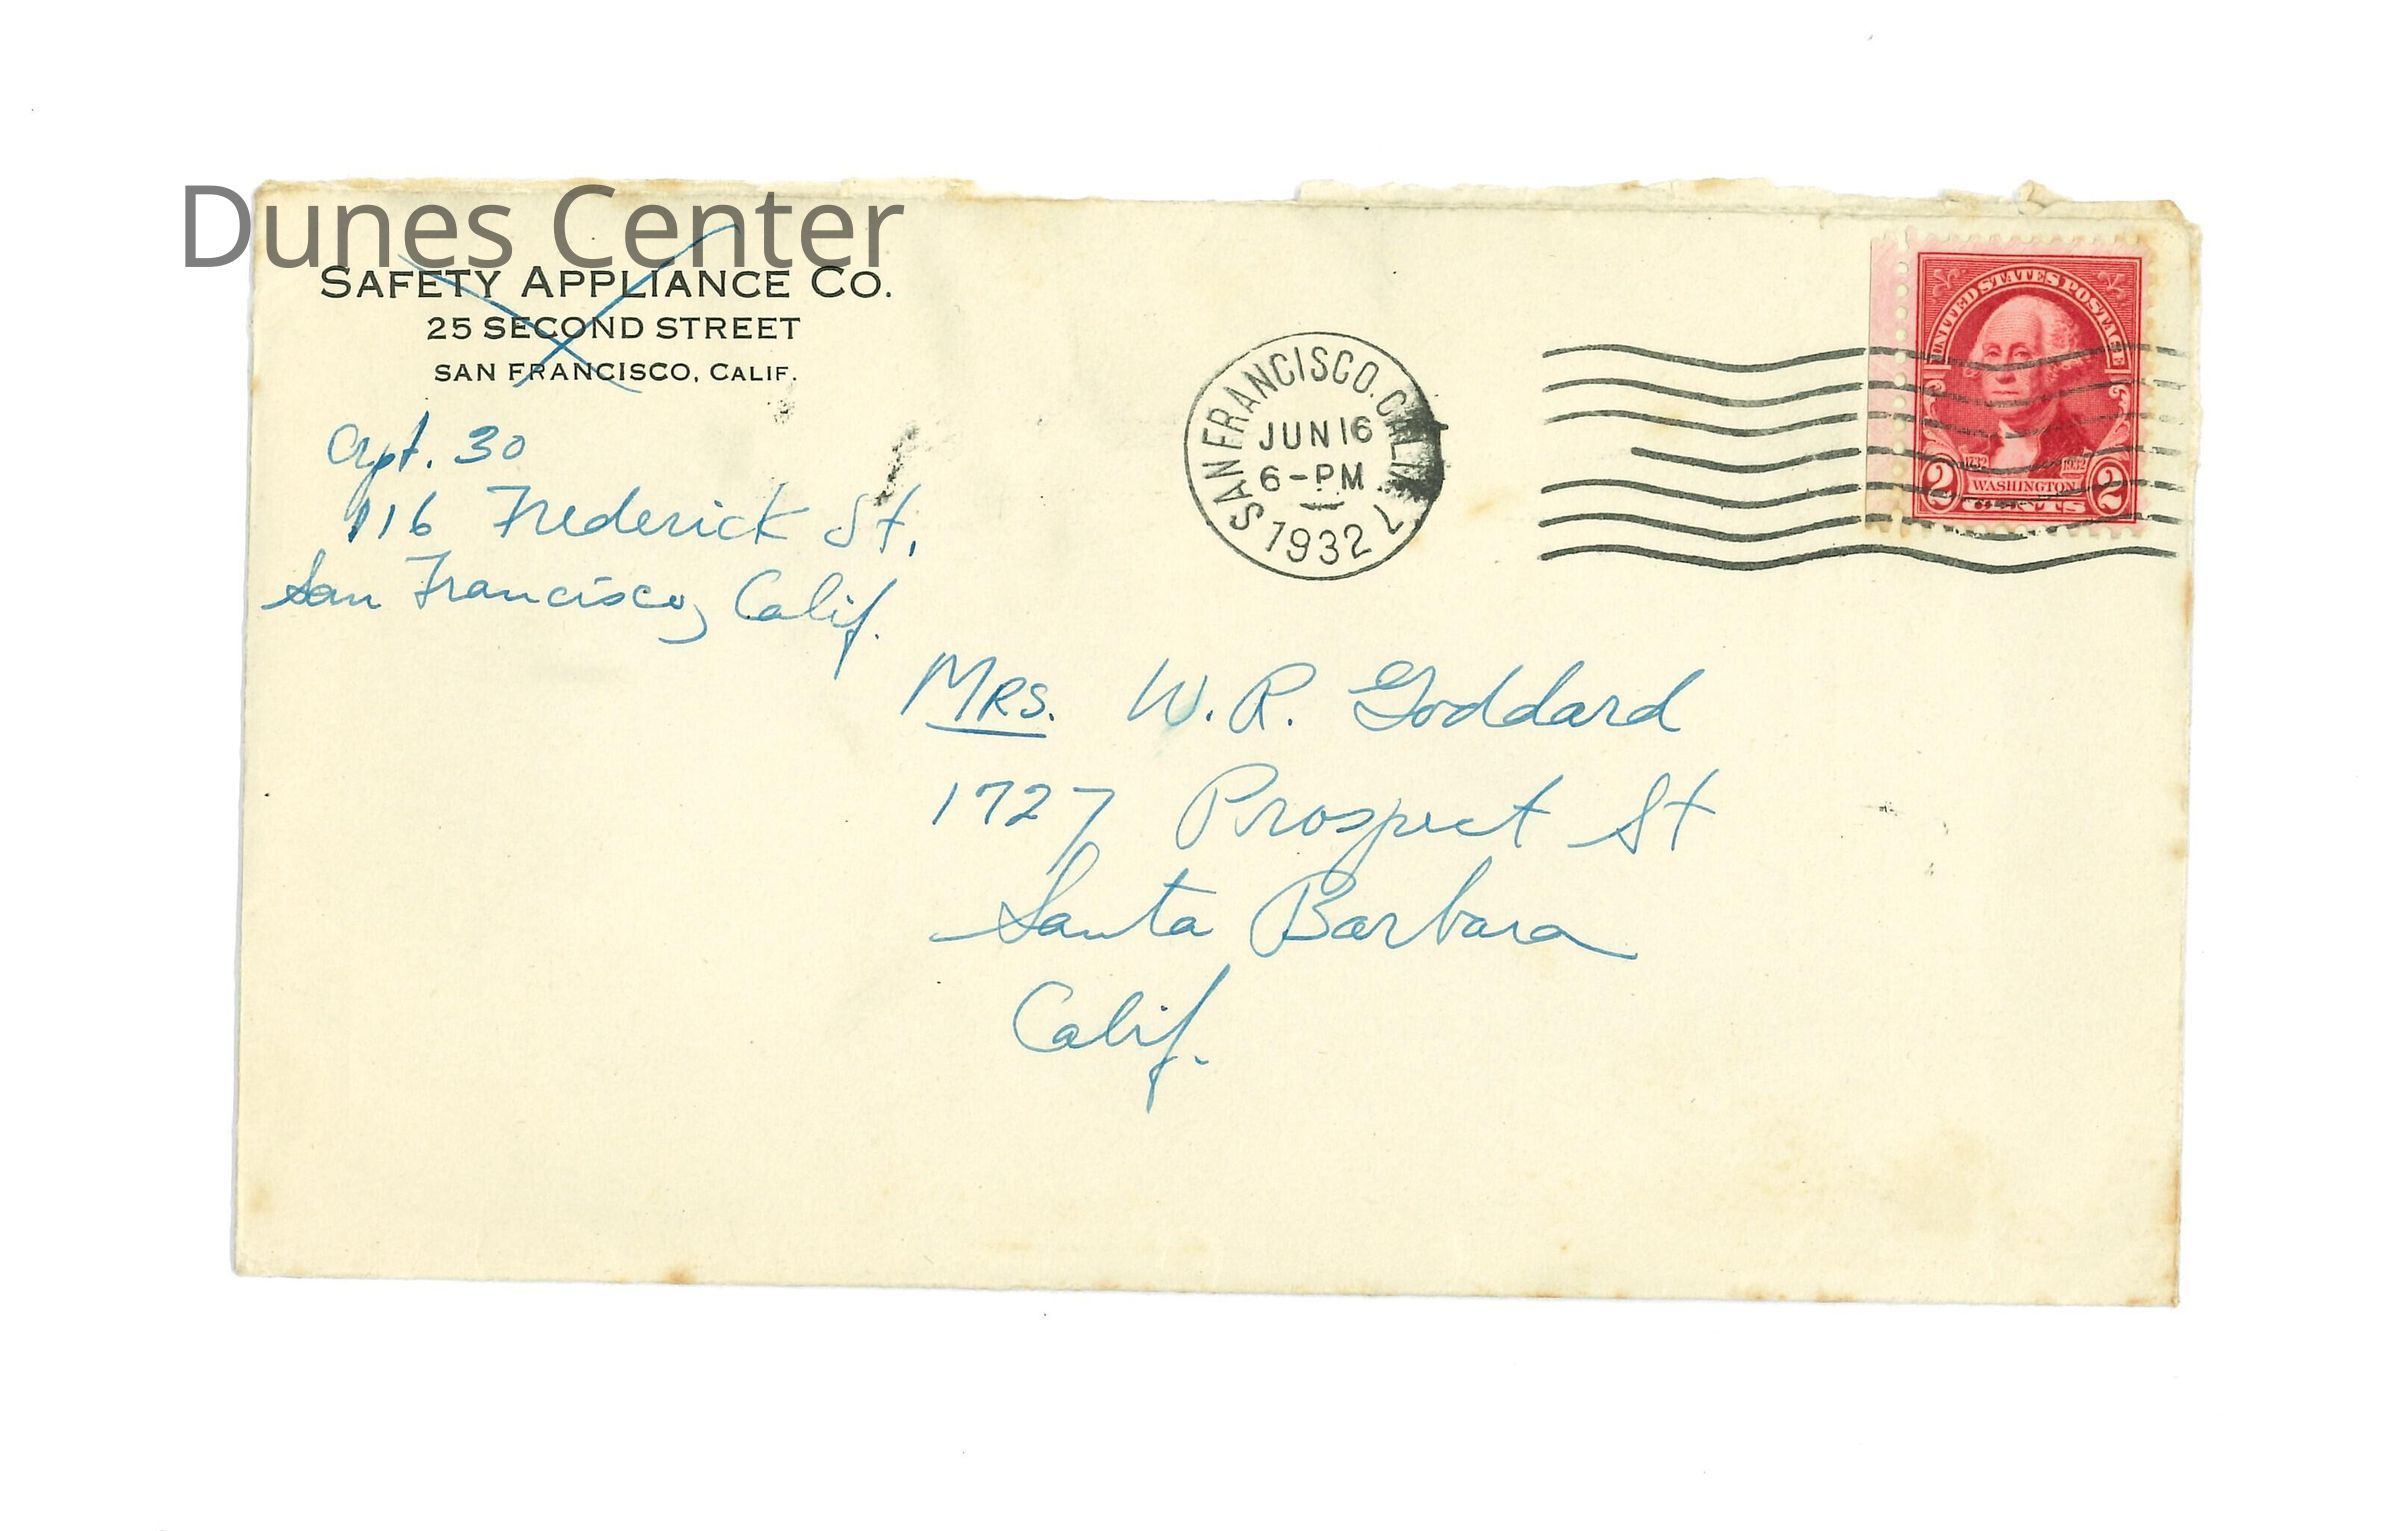 Dunes Center
SAFETY APPLIANCE CO.
25 SECOND STREET
SAN FRANCISCO, CALIF.
Apt. 30
116 Frederick St.
San Francisco, Calif.
SAN FRANCISCO. CALIF.
JUN 16
6-PM
1932
UNITED STATES POSTAGE
1732 1932
2 WASHINGTON 2
CENTS
MRS. W. R. Goddard
1727 Prospect St
Santa Barbara
Calif.